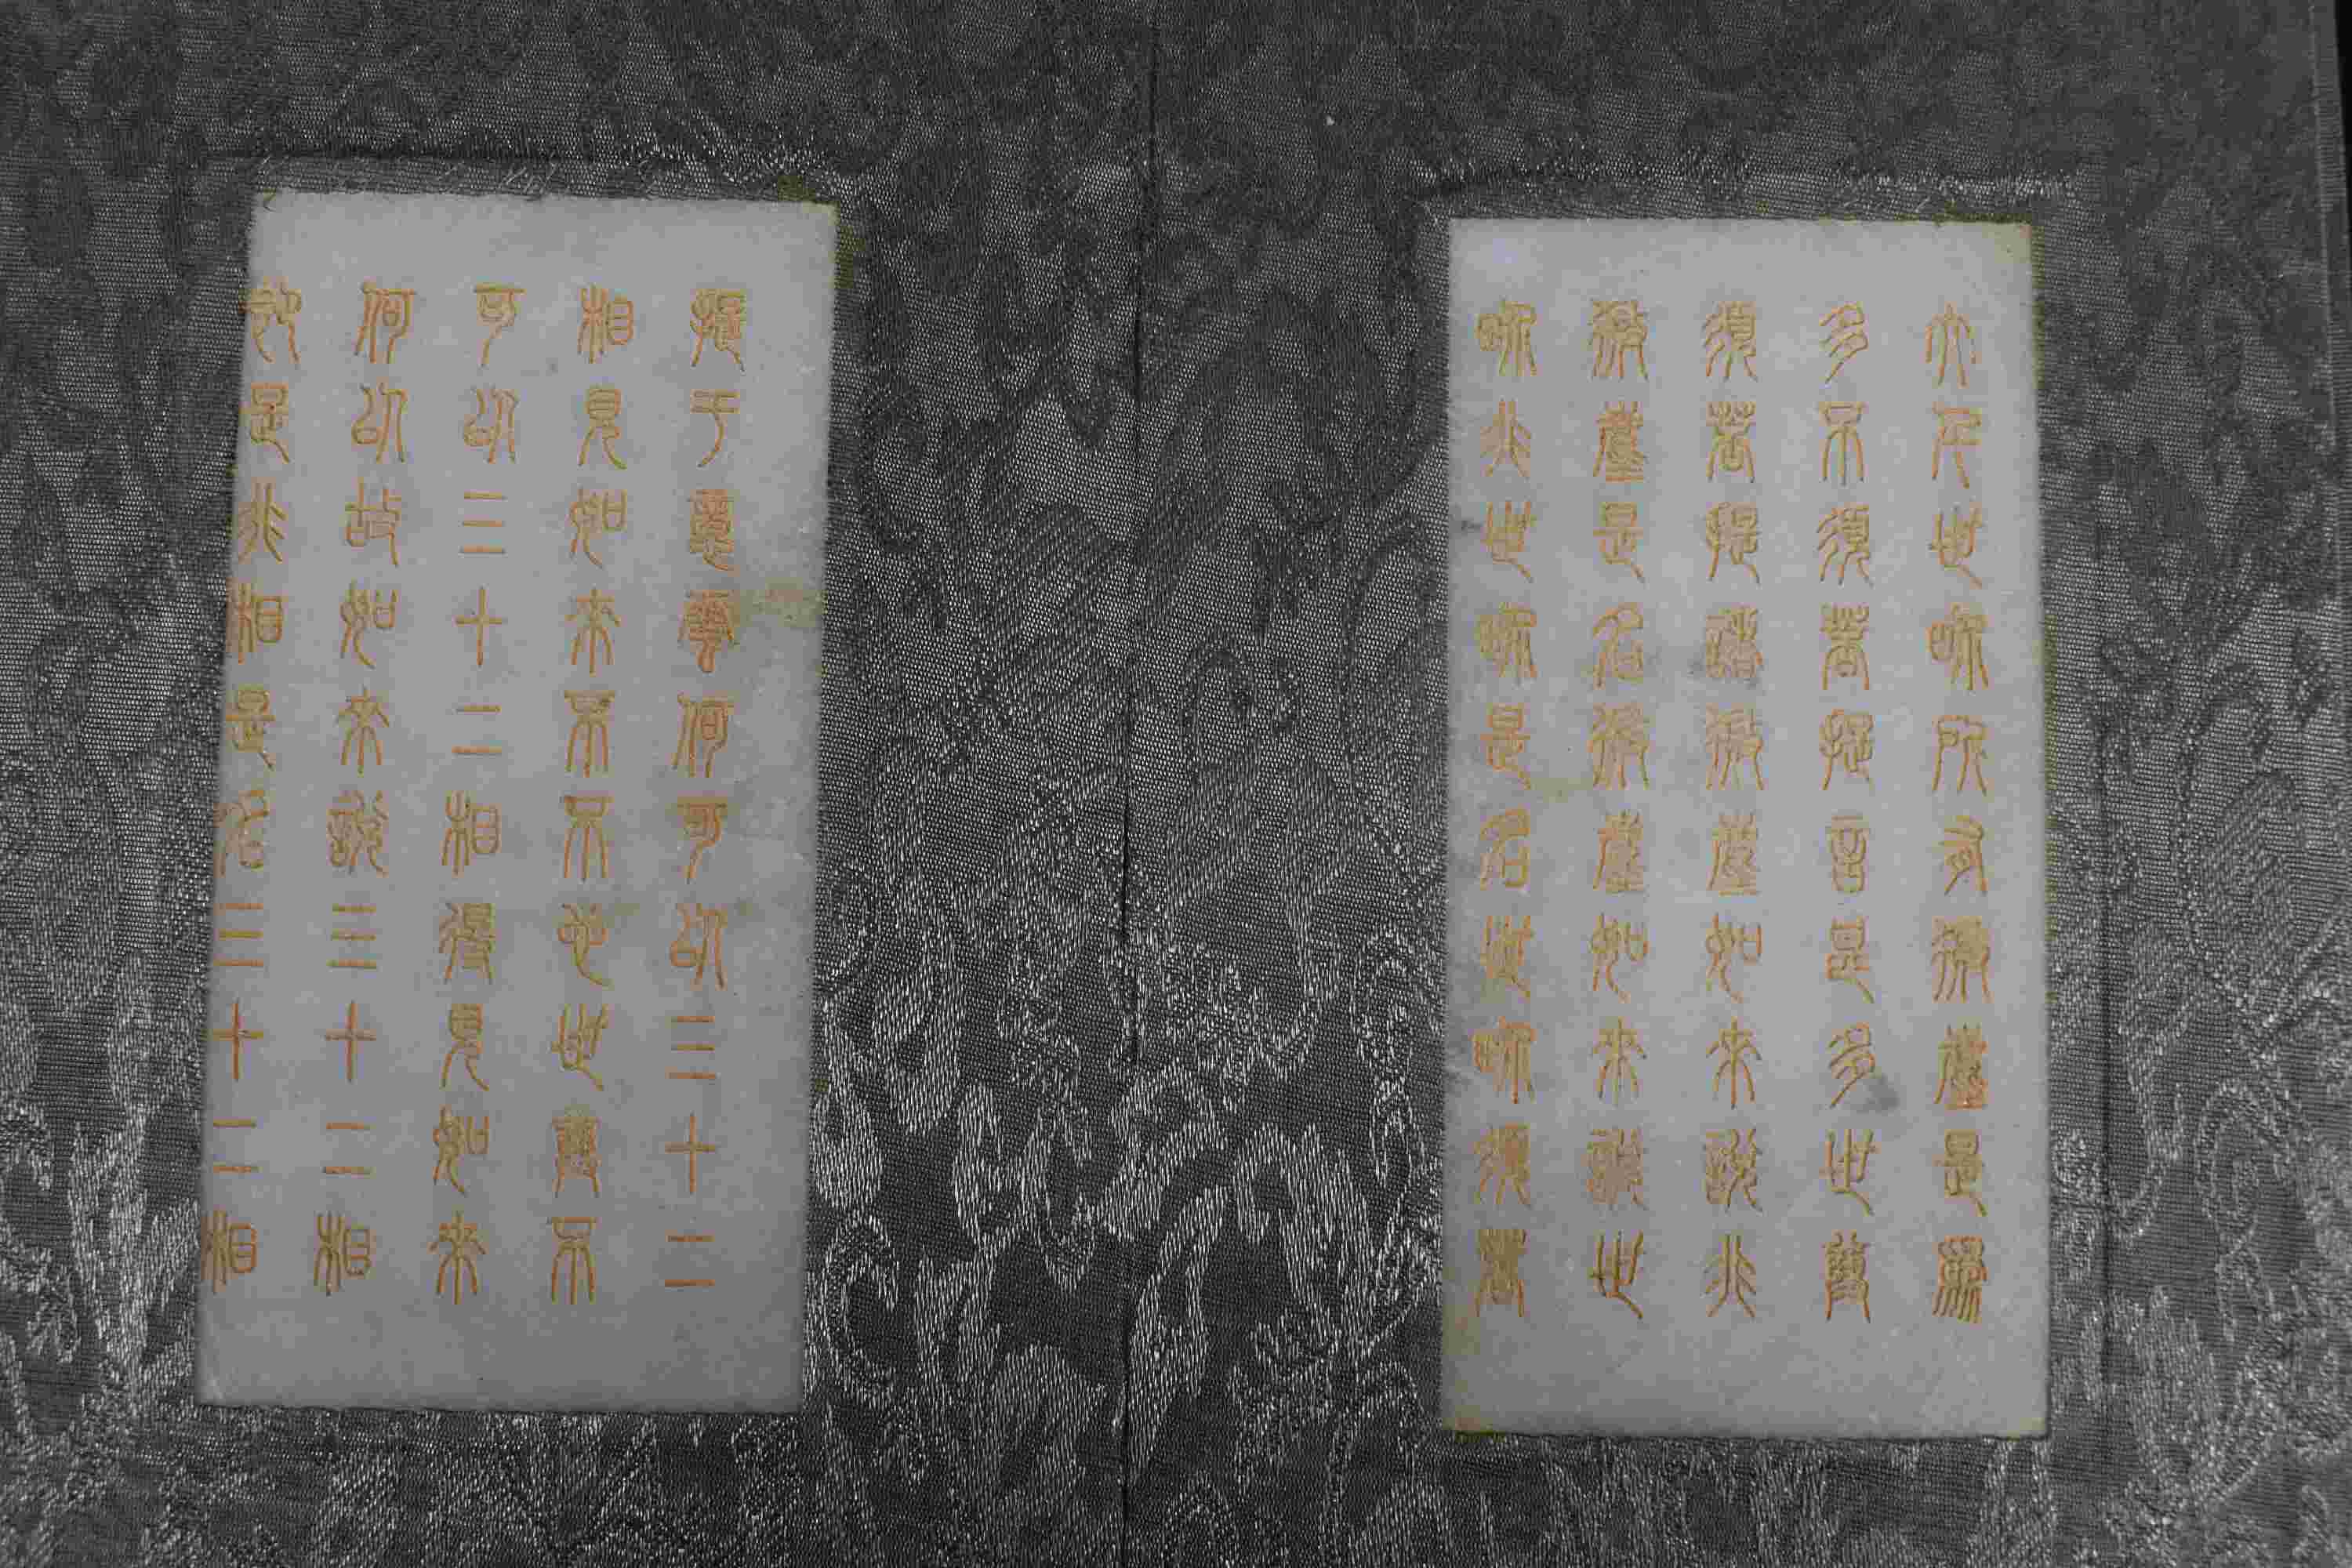 大千世界所有微塵是為
多不須菩提言甚多世尊
須菩提諸微塵如來說非
微塵是名微塵如來說世
界非世界是名世界須菩
提于意雲何可以三十二
相見如來不不也世尊不
可以三十二相得見如來
何以故如來說三十二相
即是非相是名三十二相